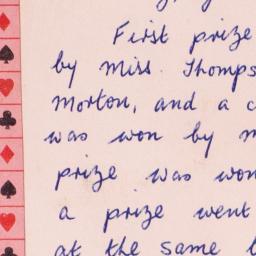 First prize
by Miss. Thomps
Morton, and a c
was won by m
prize was won
a prize went
at the same